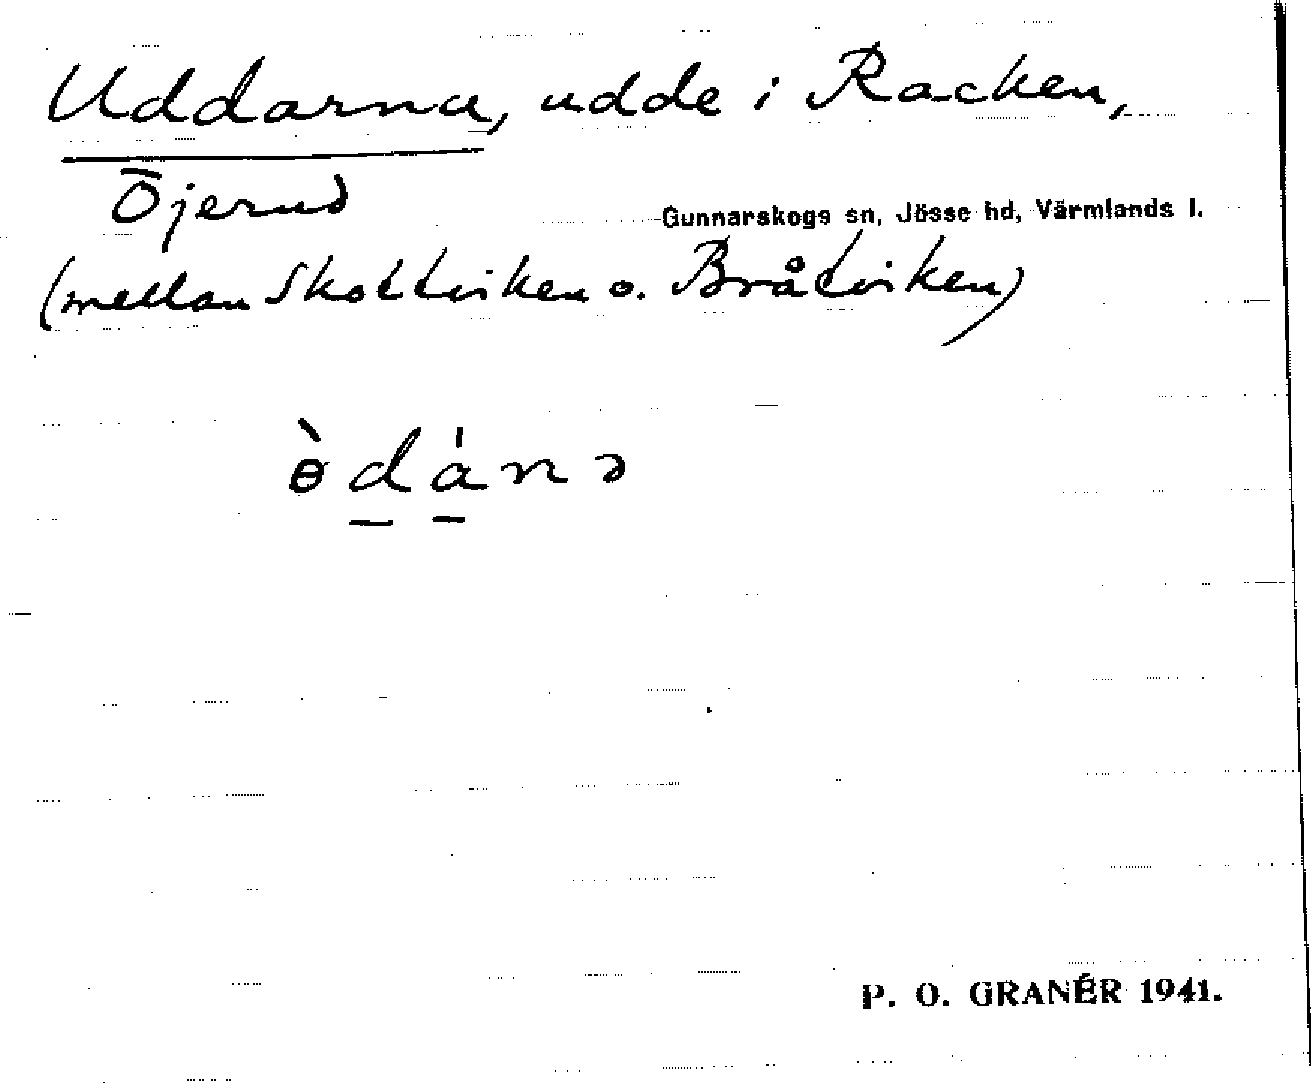 Uddarna, udde i Racken,
Öjerud
Gunnarskogs sn, Jösse hd, Värmlands l.
(mellan Skottviken o. Bråtviken)
ɵ̀dánə
P. O. GRANÉR 1941.